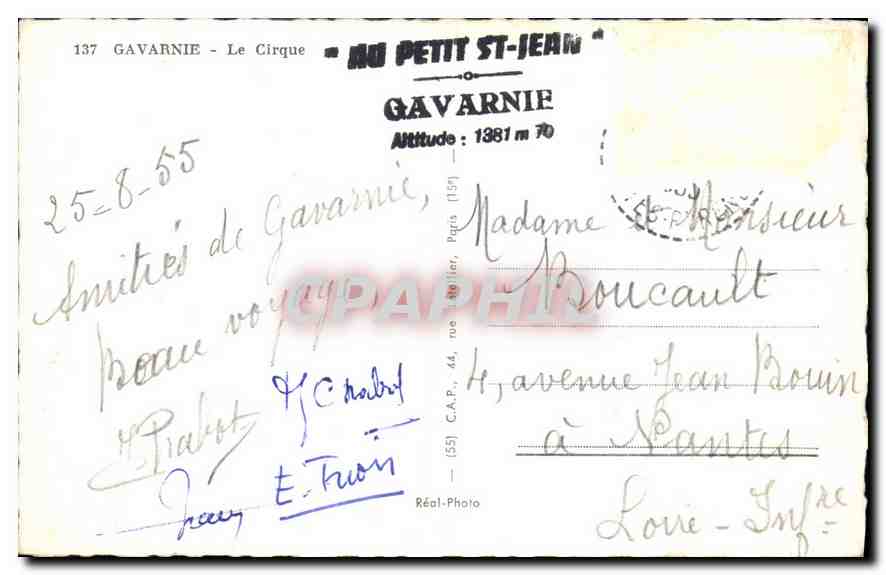 137 GAVARNIE - Le Cirque
"AU PETIT ST-JEAN"
GAVARNIE
Altitude : 1381 m 70
25-8-55
Amitiés de Gavarnie,
Beau voyage,
Madame & Monsieur
Boucault
4, avenue Jean Bouin
à Nantes
Loire-Infre
(55) C.A.P., 44, rue Letellier, Paris (15e)
Réal-Photo
CPAPHIL